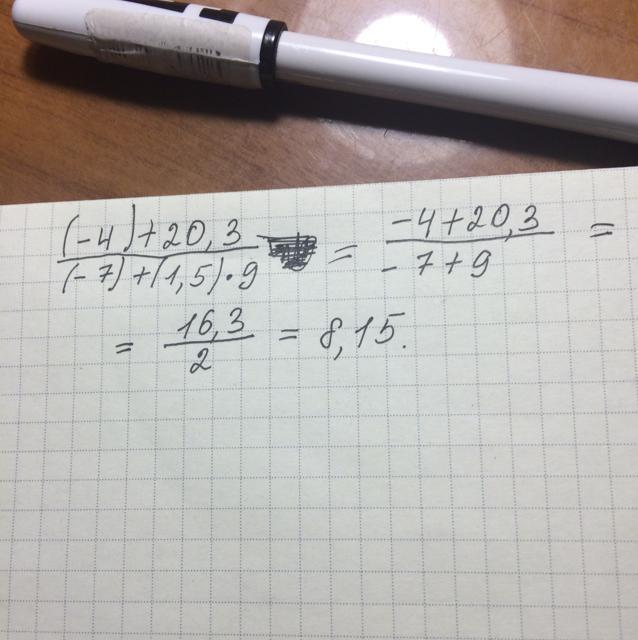 (-4)+20,3 / (-7)+(1,5)·9 = -4+20,3 / -7+9 =
= 16,3 / 2 = 8,15.